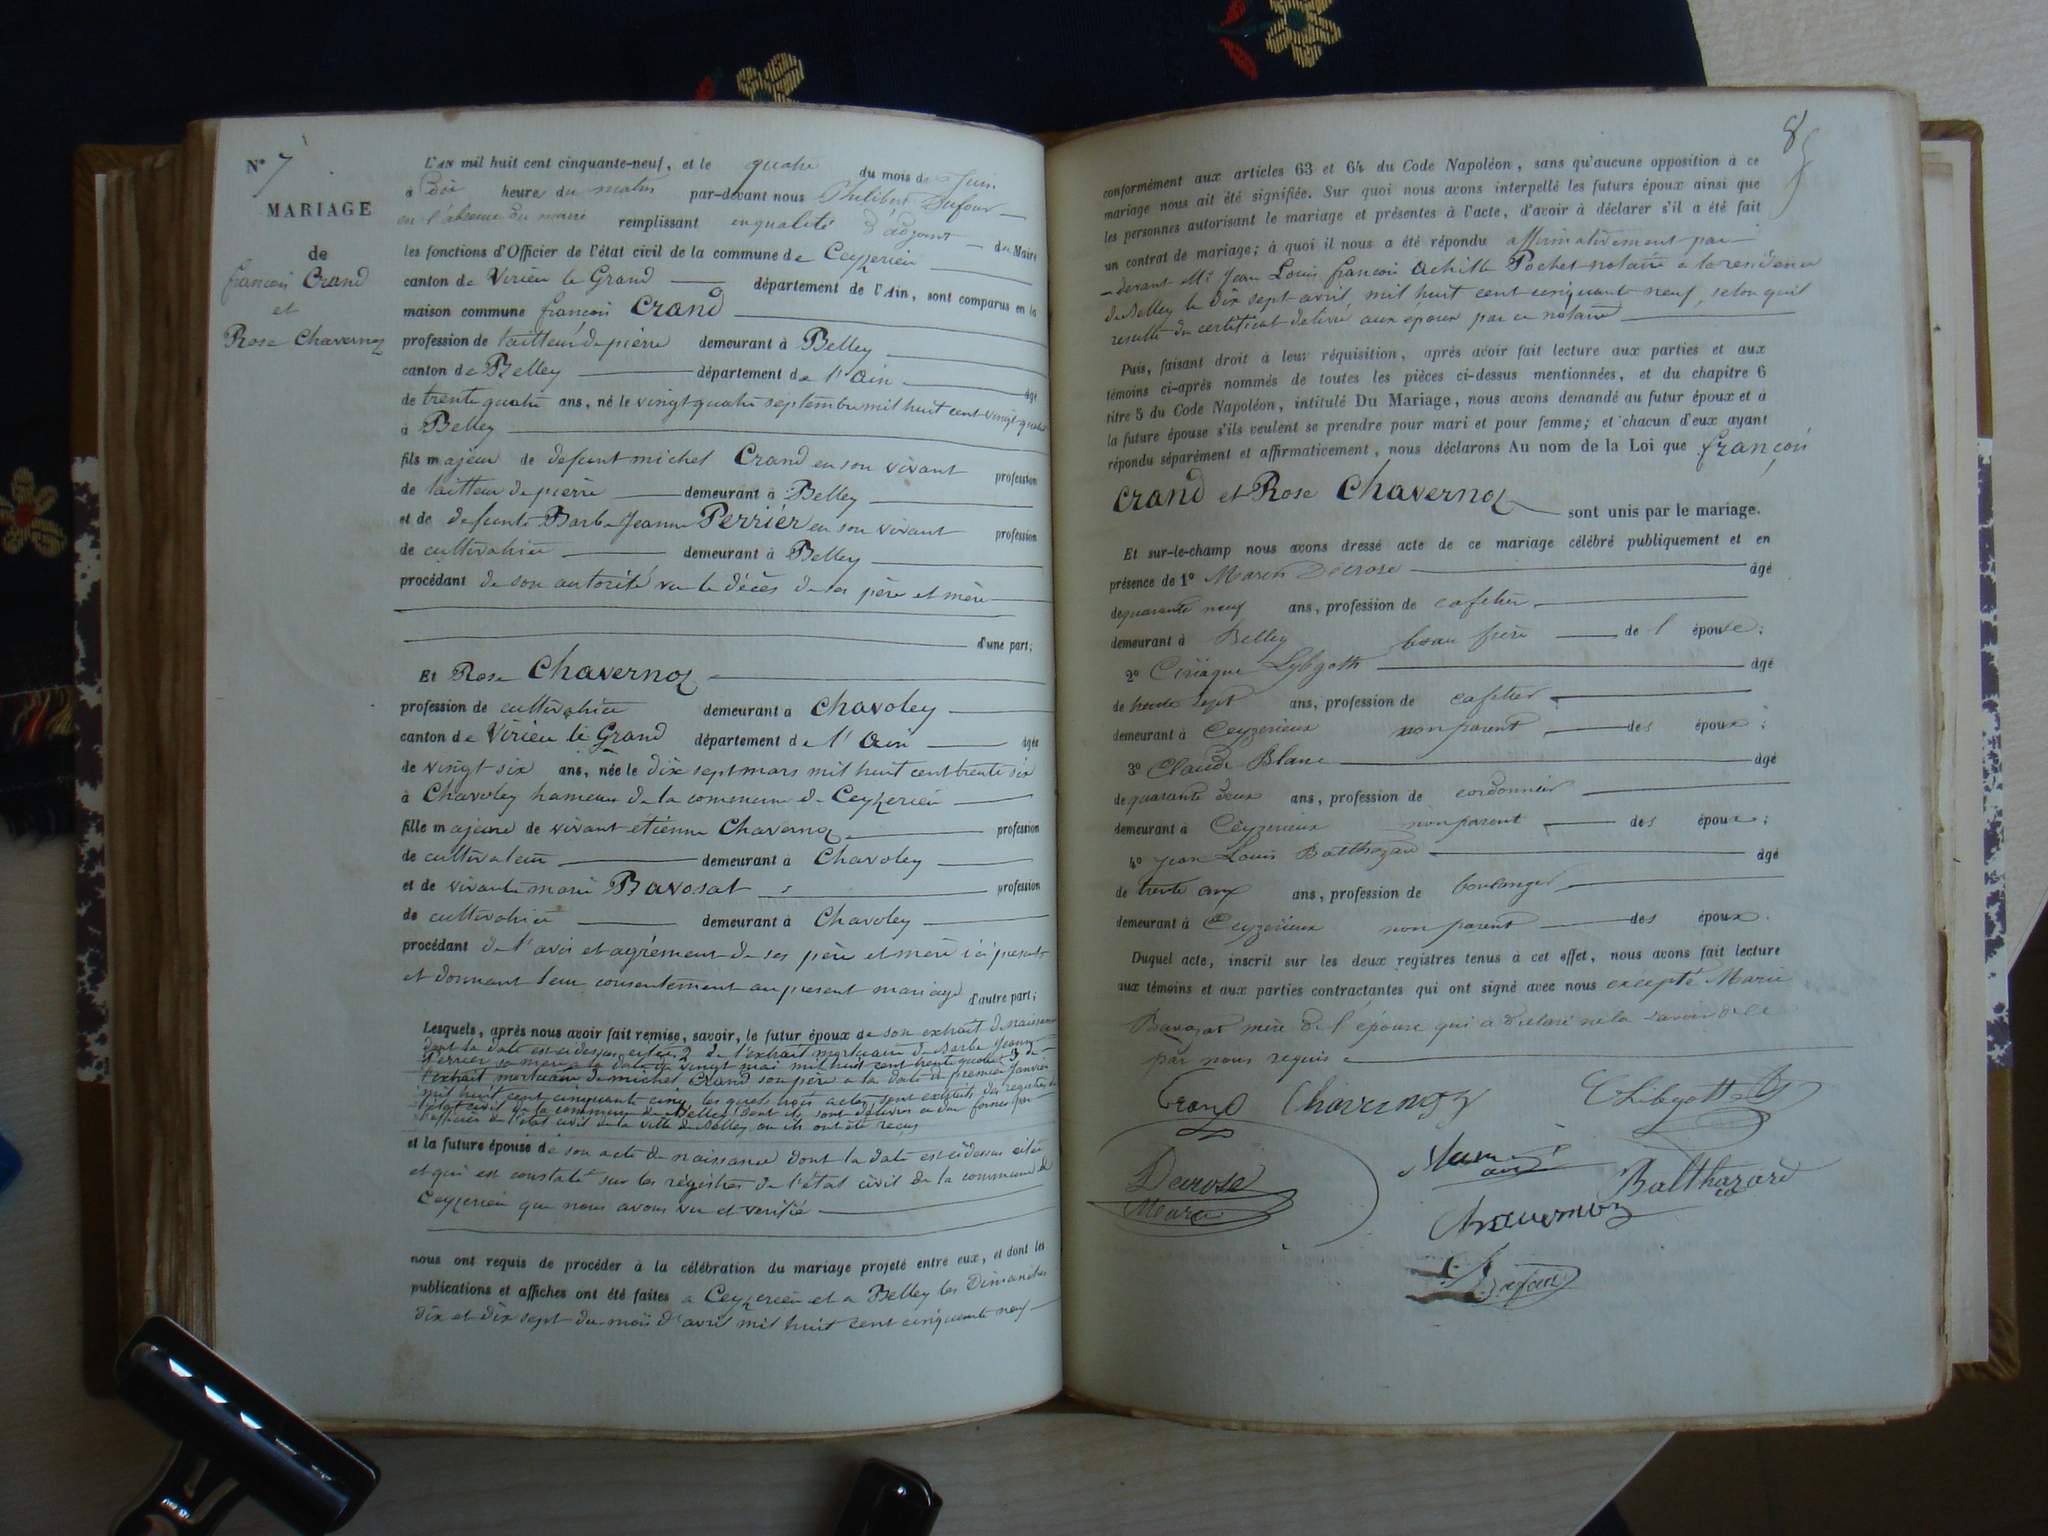 N° 7
MARIAGE
de
françois Crand
et
Rose Chavernoz
L'AN mil huit cent cinquante-neuf, et le quatre du mois de Juin
a Dix heure du matin par-devant nous Philibert Dufour
en l'absence du maire remplissant en qualité d'adjoint du Maire
les fonctions d'Officier de l'état civil de la commune de Ceyzerieu
canton de Virieu le Grand département de l'Ain, sont comparus en la
maison commune françois Crand
profession de tailleur de pierre demeurant à Belley
canton de Belley département de l'ain âgé
de trente quatre ans, né le vingt quatre septembre mil huit cent vingt quatre
à Belley
fils majeur de defunt michel Crand en son vivant profession
de tailleur de pierre demeurant à Belley
et de defunte Barbe Jeanne Perrier en son vivant profession
de cultivatrice demeurant à Belley
procédant de son autorité vu le décès de ses père et mère
d'une part;
Et Rose Chavernoz
profession de cultivatrice demeurant à Chavoley
canton de Virieu le Grand département de l'ain âgée
de vingt six ans, née le dix sept mars mil huit cent trente six
à Chavoley hameau de la commune de Ceyzerieu
fille majeure de vivant etienne Chavernoz profession
de cultivateur demeurant à Chavoley
et de vivante marie Bavosat profession
de cultivatrice demeurant à Chavoley
procédant de l'avis et agrément de ses père et mère ici présents
et donnant leur consentement au present mariage d'autre part;
Lesquels, après nous avoir fait remise, savoir, le futur époux de son extrait de naissance
dont la date est ci dessus citée, 2 de l'extrait mortuaire de Barbe Jeanne
Perrier sa mère a la date du vingt mai mil huit cent trente quatre 3 de
l'extrait mortuaire de michel Crand son père a la date du premier Janvier
mil huit cent cinquante cinq, les quels trois actes sont extraits des registres de
l'état civil de la commune de Belley dont ils sont délivrés en due forme par
l'officier de l'état civil de la ville de Belley ou ils ont été reçus
et la future épouse de son acte de naissance dont la date est ci dessus citée
et qui est constaté sur les registres de l'état civil de la commune de
Ceyzerieu que nous avons vu et verifié
nous ont requis de procéder à la célébration du mariage projeté entre eux, et dont les
publications et affiches ont été faites a Ceyzerieu et a Belley les Dimanches
dix et dix sept du mois d'avril mil huit cent cinquante neuf
8
conformément aux articles 63 et 64 du Code Napoléon, sans qu'aucune opposition à ce
mariage nous ait été signifiée. Sur quoi nous avons interpellé les futurs époux ainsi que
les personnes autorisant le mariage et présentes à l'acte, d'avoir à déclarer s'il a été fait
un contrat de mariage; à quoi il nous a été répondu affirmativement par
devant Me Jean Louis françois Achille Pochet notaire a la residence
de Belley le dix sept avril mil huit cent cinquante neuf, selon qu'il
resulte du certificat delivré aux epoux par ce notaire
Puis, faisant droit à leur réquisition, après avoir fait lecture aux parties et aux
témoins ci-après nommés de toutes les pièces ci-dessus mentionnées, et du chapitre 6
titre 5 du Code Napoléon, intitulé Du Mariage, nous avons demandé au futur époux et à
la future épouse s'ils veulent se prendre pour mari et pour femme; et chacun d'eux ayant
répondu séparément et affirmativement, nous déclarons Au nom de la Loi que françois
Crand et Rose Chavernoz sont unis par le mariage.
Et sur-le-champ nous avons dressé acte de ce mariage célébré publiquement et en
présence de 1° Marin Decrose âgé
de quarante neuf ans, profession de cafetier
demeurant à Belley beau frère de l'épouse;
2° Ciriaque âgé
de trente sept ans, profession de cafetier
demeurant à Ceyzerieux non parent des époux;
3° Claude Blanc âgé
de quarante deux ans, profession de cordonnier
demeurant à Ceyzerieux non parent des époux;
4° Jean Louis Balthazard âgé
de trente ans, profession de boulanger
demeurant à Ceyzerieux non parent des époux.
Duquel acte, inscrit sur les deux registres tenus à cet effet, nous avons fait lecture
aux témoins et aux parties contractantes qui ont signé avec nous excepté Marie
Bavozat mère de l'épouse qui a declaré ne la savoir de ce
par nous requis
Crand Chavernoz
Decrose
Balthazard
Chavernoz
Dufour